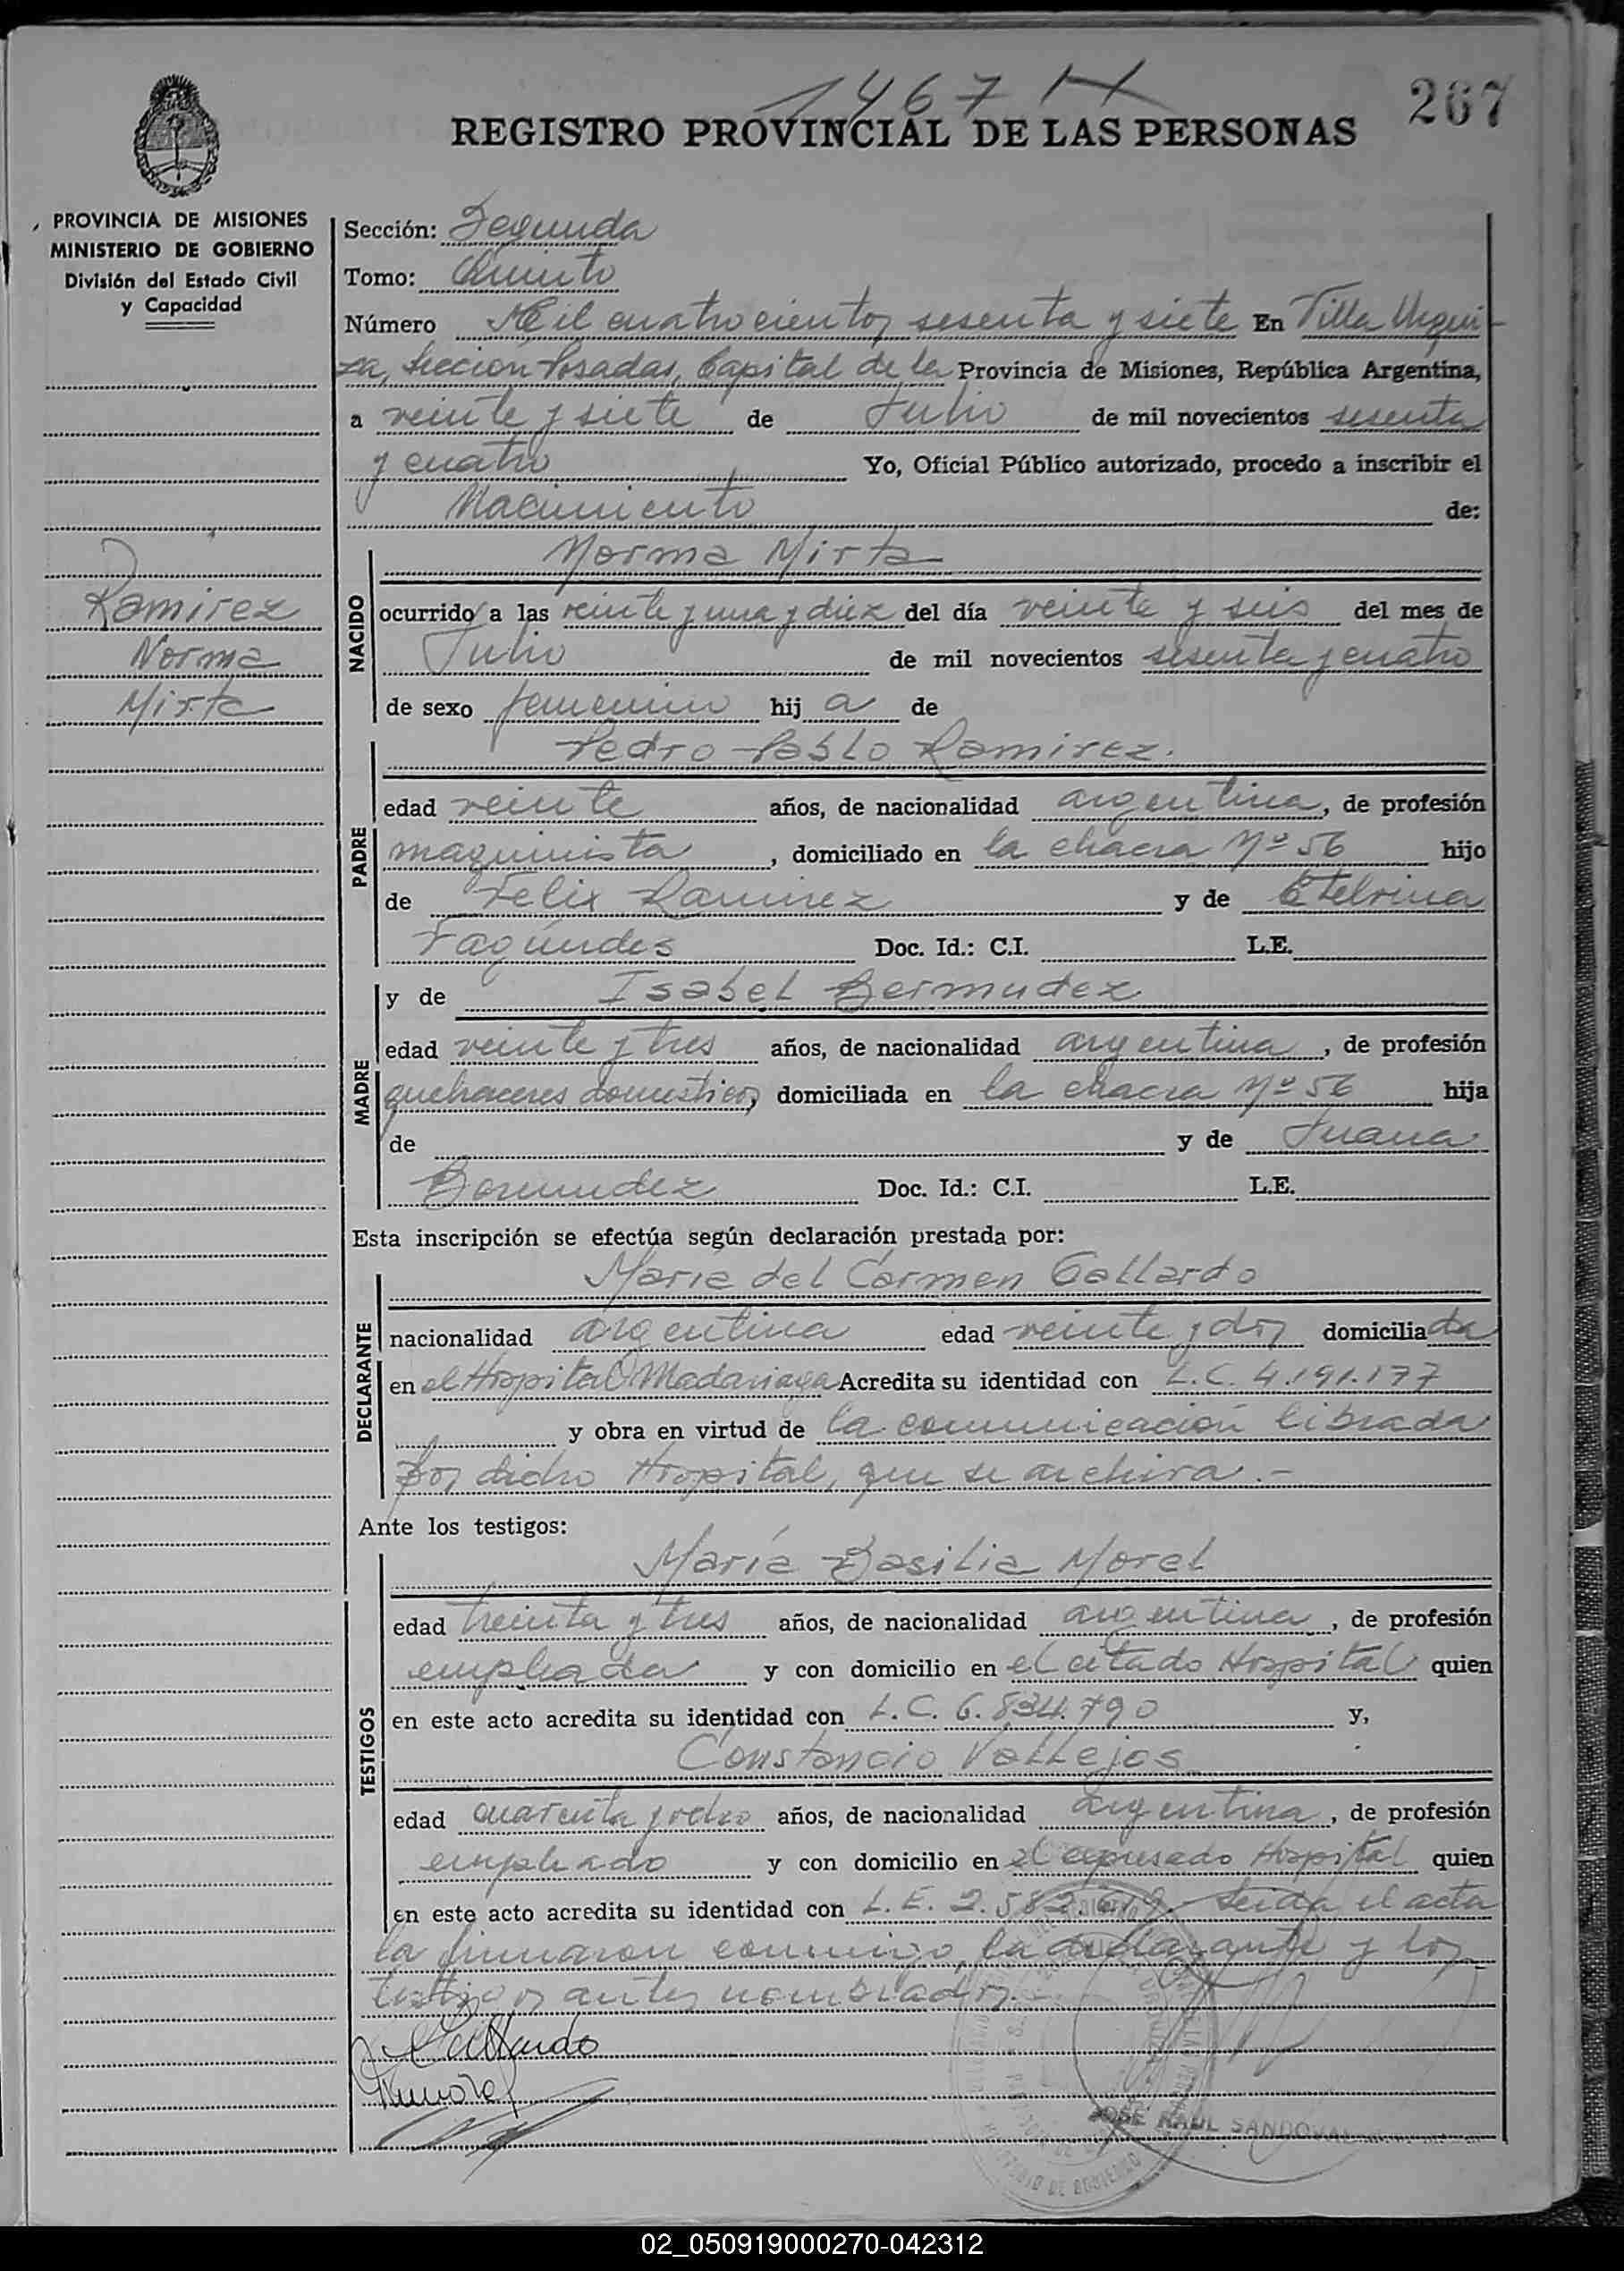 1467 H
267
REGISTRO PROVINCIAL DE LAS PERSONAS
PROVINCIA DE MISIONES
MINISTERIO DE GOBIERNO
División del Estado Civil
y Capacidad
Ramirez
Norma
Mirta
Sección: Segunda
Tomo: Quinto
Número Mil cuatrocientos sesenta y siete En Villa Urqui-
za, Sección Posadas, Capital de la Provincia de Misiones, República Argentina,
a veinte y siete de Julio de mil novecientos sesenta
y cuatro Yo, Oficial Público autorizado, procedo a inscribir el
Nacimiento de:
NACIDO
Norma Mirta
ocurrido a las veinte y una y diez del día veinte y seis del mes de
Julio de mil novecientos sesenta y cuatro
de sexo femenino hij a de
PADRE
Pedro Pablo Ramirez.
edad veinte años, de nacionalidad argentina, de profesión
maquinista, domiciliado en la chacra Nº 56 hijo
de Felix Ramirez y de Etelvina
Fagúndes Doc. Id.: C.I. L.E.
MADRE
y de Isabel Bermudez
edad veinte y tres años, de nacionalidad argentina, de profesión
quehaceres domesticos, domiciliada en la chacra Nº 56 hija
de y de Juana
Bermudez Doc. Id.: C.I. L.E.
Esta inscripción se efectúa según declaración prestada por:
DECLARANTE
Maria del Carmen Gallardo
nacionalidad argentina edad veinte y dos domiciliada
en el Hospital Madariaga Acredita su identidad con L.C. 4.191.177
y obra en virtud de la comunicación librada
por dicho Hospital, que se archiva.-
Ante los testigos:
TESTIGOS
María Basilia Morel
edad treinta y tres años, de nacionalidad argentina, de profesión
empleada y con domicilio en el citado Hospital quien
en este acto acredita su identidad con L.C. 6.834.790 y,
Constancio Vallejos
edad cuarenta y ocho años, de nacionalidad argentina, de profesión
empleado y con domicilio en el expresado Hospital quien
en este acto acredita su identidad con L.E. 2.582. Leida el acta
la firmaron conmigo, la declarante y los
testigos antes nombrados.-
Gallardo
JOSE RAUL SANDOVAL
02_050919000270-042312